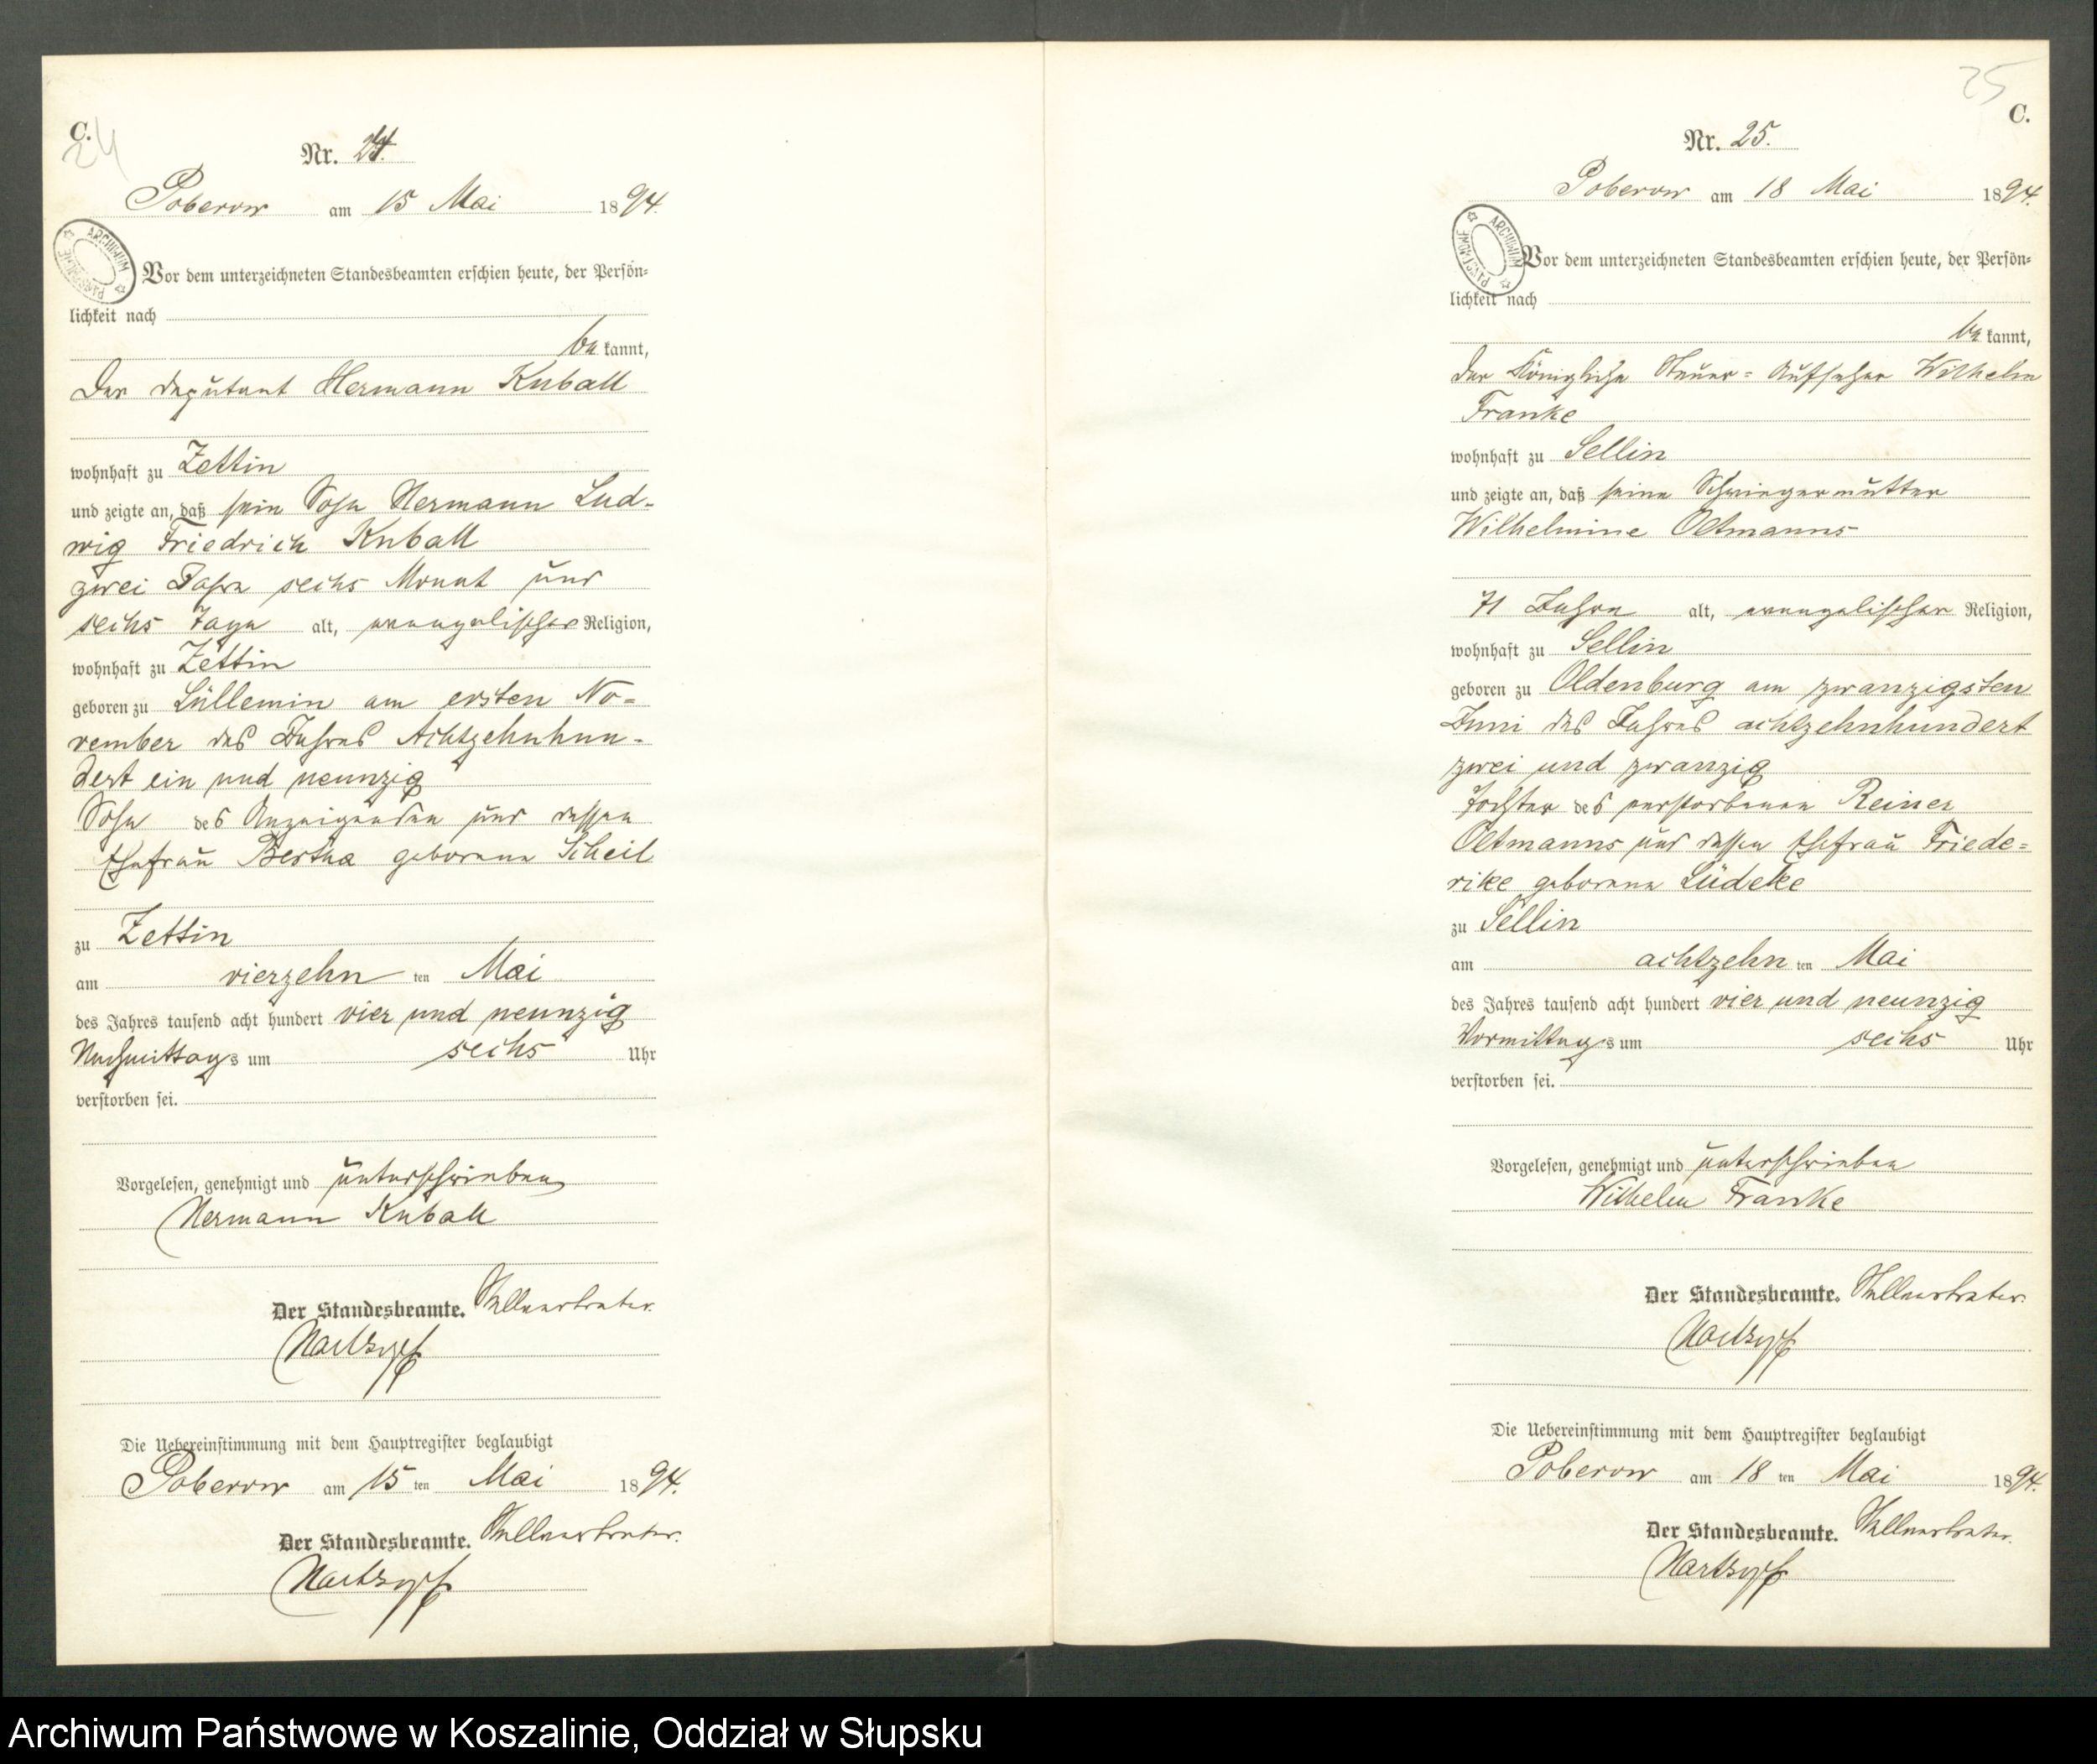 C.
24
Nr. 24.
Poberow am 15 Mai 1894.
ARCHIWUM PAŃSTWOWE
Vor dem unterzeichneten Standesbeamten erschien heute, der Persön-
lichkeit nach
be kannt,
Der Deputant Hermann Kuball
wohnhaft zu Zettin
und zeigte an, daß sein Sohn Hermann Lud-
wig Friedrich Kuball
zwei Jahre sechs Monat und
sechs Tage alt, evangelischer Religion,
wohnhaft zu Zettin
geboren zu Lüllemin am ersten No-
vember des Jahres Achtzehnhun-
dert ein und neunzig
Sohn des Anzeigenden und dessen
Ehefrau Bertha geborene Scheil
zu Zettin
am vierzehn ten Mai
des Jahres tausend acht hundert vier und neunzig
Nachmittags um sechs Uhr
verstorben sei.
Vorgelesen, genehmigt und unterschrieben
Hermann Kuball
Der Standesbeamte. Stellvertreter.
Die Uebereinstimmung mit dem Hauptregister beglaubigt
Poberow am 15 ten Mai 1894.
Der Standesbeamte. Stellvertreter.
25
C.
Nr. 25.
Poberow am 18 Mai 1894.
ARCHIWUM PAŃSTWOWE
Vor dem unterzeichneten Standesbeamten erschien heute, der Persön-
lichkeit nach
be kannt,
der Königliche Steuer-Aufseher Wilhelm
Franke
wohnhaft zu Sellin
und zeigte an, daß seine Schwiegermutter
Wilhelmine Oltmanns
71 Jahre alt, evangelischer Religion,
wohnhaft zu Sellin
geboren zu Oldenburg am zwanzigsten
Juni des Jahres achtzehnhundert
zwei und zwanzig
Tochter des verstorbenen Reiner
Oltmanns und dessen Ehefrau Friede-
rike geborene Lüdeke
zu Sellin
am achtzehn ten Mai
des Jahres tausend acht hundert vier und neunzig
Vormittags um sechs Uhr
verstorben sei.
Vorgelesen, genehmigt und unterschrieben
Wilhelm Franke
Der Standesbeamte. Stellvertreter.
Die Uebereinstimmung mit dem Hauptregister beglaubigt
Poberow am 18 ten Mai 1894.
Der Standesbeamte. Stellvertreter.
Archiwum Państwowe w Koszalinie, Oddział w Słupsku